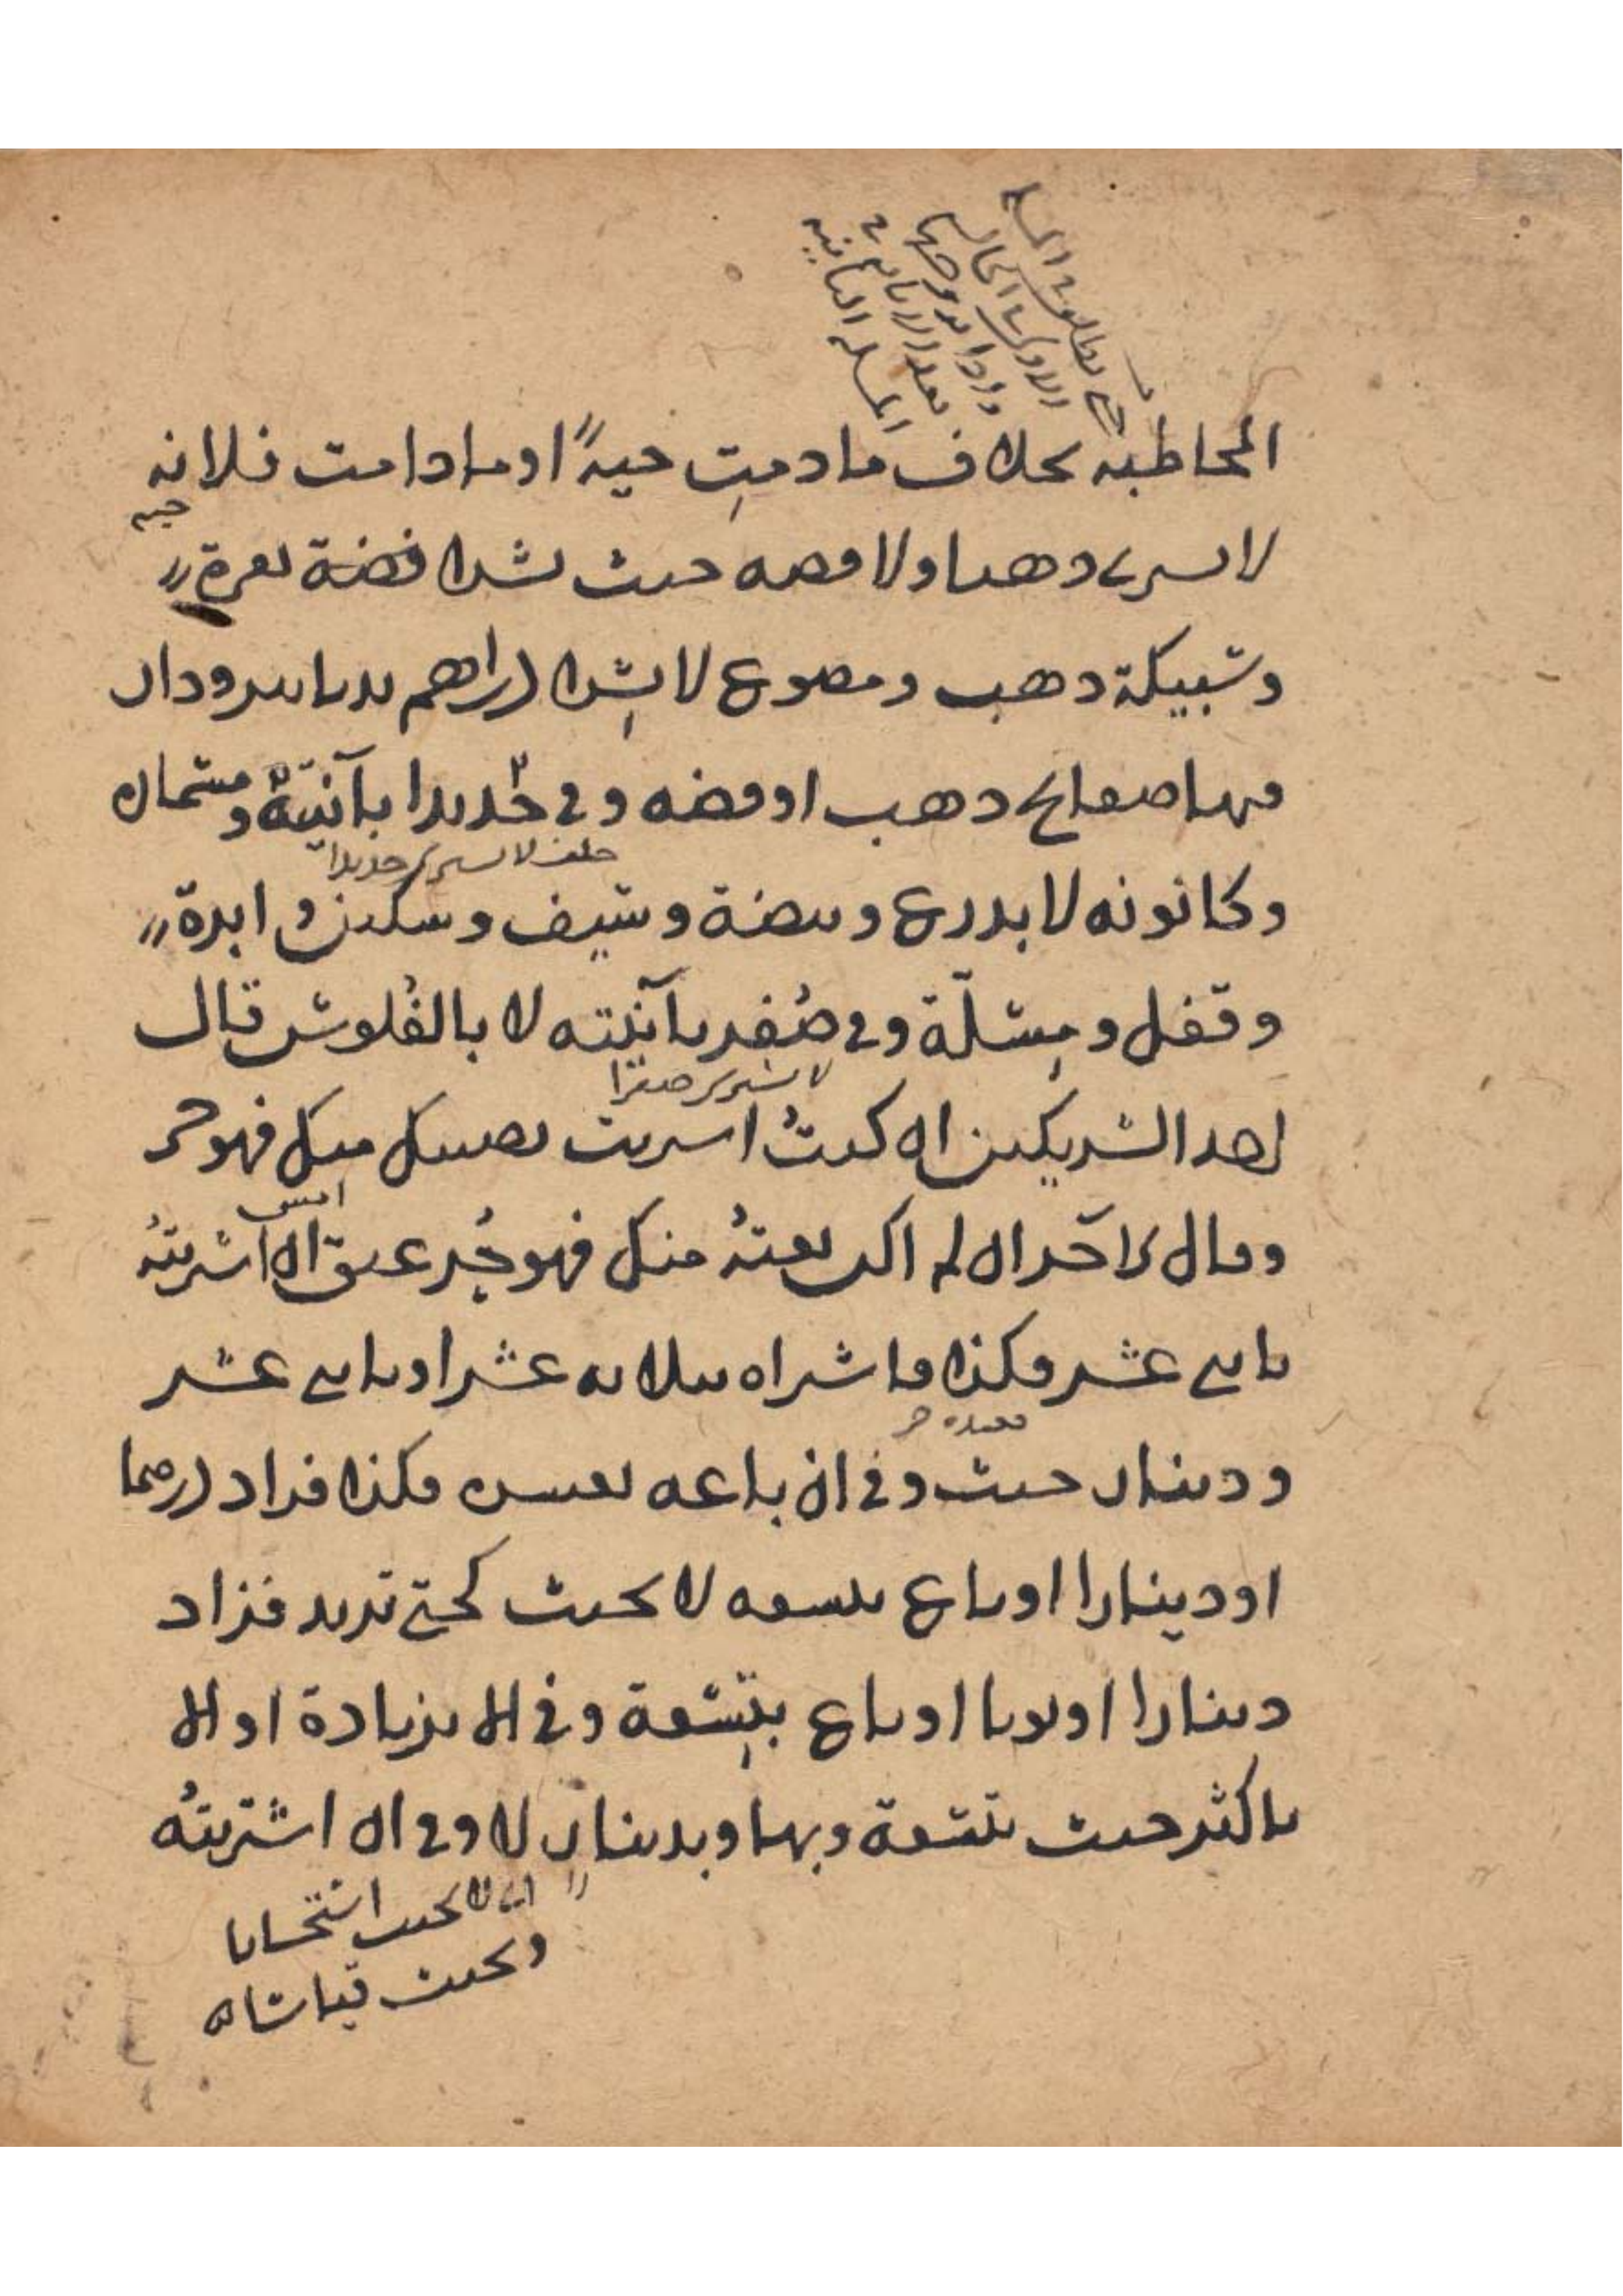 المخاطبة بخلاف ما دمتِ حيةً او ما دامت فلانة
حية
لا يشتري ذهبا ولا فضه حنث بشرا فضة نقرة
وسبيكة ذهب ومصوغ لا بشرا دراهم ودار
فيها صفايح ذهب او فضه وفي حديدا بآنيته ومسمار
حلف لا يشتري حديدا
وكانونه لا بدرع وبيضة وسيف وسكين وابرة
وقفل ومسلّة وفي صُفر بآنيته لا بالفُلوس قال
لا يشتري صفرا
احد الشريكين ان كنتُ اشتريت نصيبك منك فهو حر
وقال الآخر ان لم اكن بعتهُ منك فهو حُر عتق ان اشتريتهُ
امس
باثني عشر فكذا فاشتراه بثلاثة عشر او باثني عشر
فعبده حر
ودينار حنث وفي ان باعه بعشرة فكذا فزاد درهما
او دينارا او باع بتسعه لا يحنث كحتى تزيد فزاد
دينارا او ثوبا او باع بتسعة وفي الا بزيادة او الا
باكثر حنث بتسعة وبها وبدينار لا وفي ان اشتريتهُ
اي لا يحنث استحسانا
ويحنث قياسا